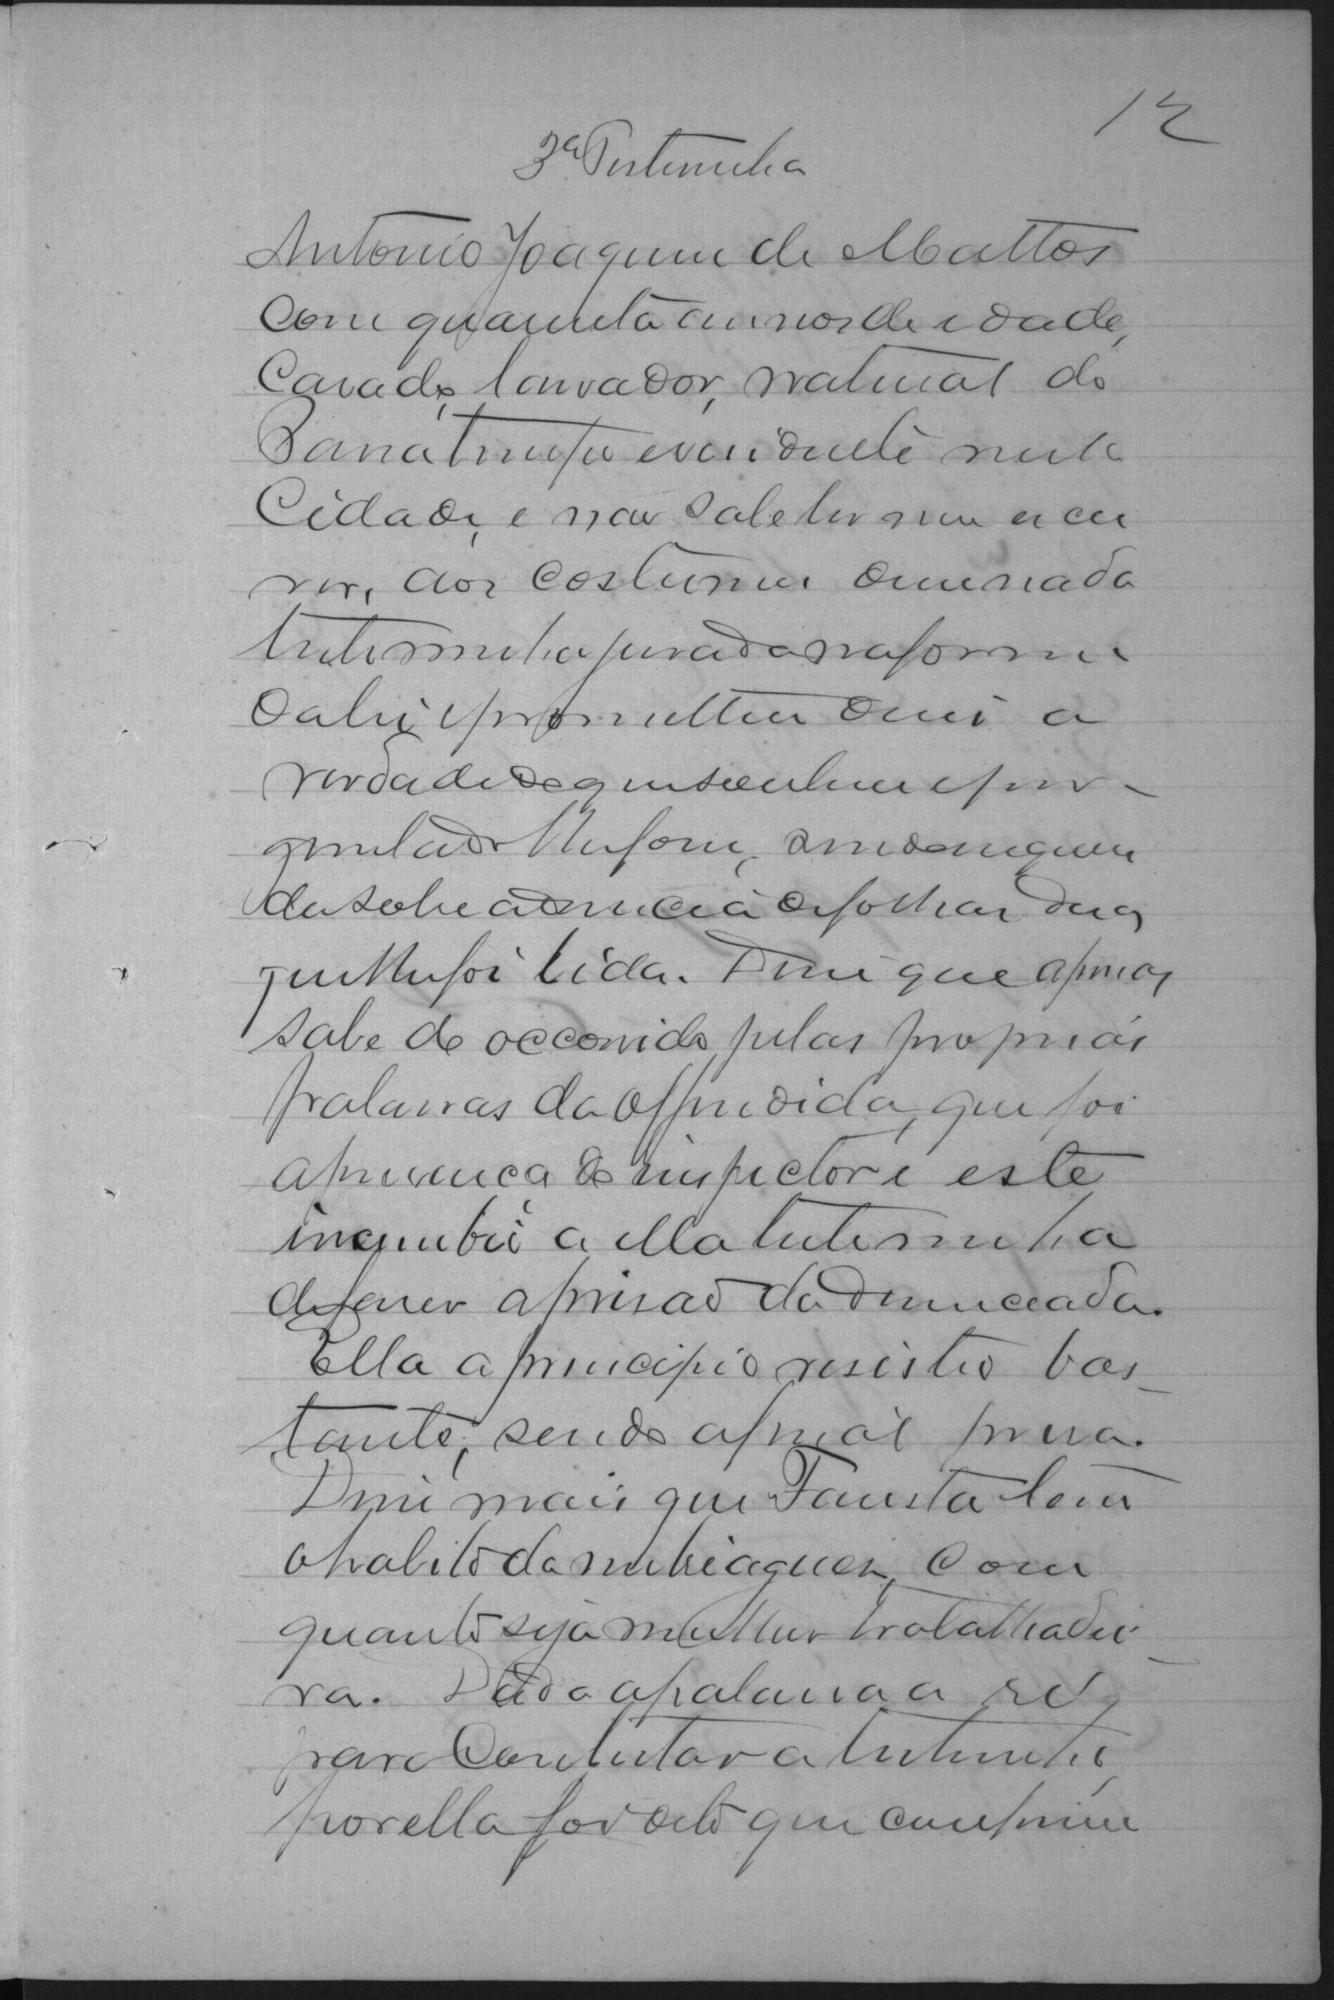 12
3ª Testemunha
Antonio Joaquim de Mattos
com quarenta annos de idade,
casado, lavrador, natural do
Paraná e residente nesta
Cidade, e não sabe ler nem escre
ver, aos costumes disse nada
testemunha jurada na forma
da lei e prometteu dizer a
verdade do que soubesse e per-
guntado lhe fosse, sendo inquiri
da sobre a denuncia de folhas duas
que lhe foi lida. Disse que apenas
sabe do occorrido pelas proprias
palavras da offendida, que foi
a presença do inspector e este
incumbio a ella testemunha
de fazer a prisão da denunciada.
Ella a principio resistio bas-
tante, sendo afinal presa.
Disse mais que Fausta tem
o habito da embriaguez, com
quanto seja mulher trabalhadei-
ra. Dada a palavra a ré
para contestar a testemunha
por ella foi dito que